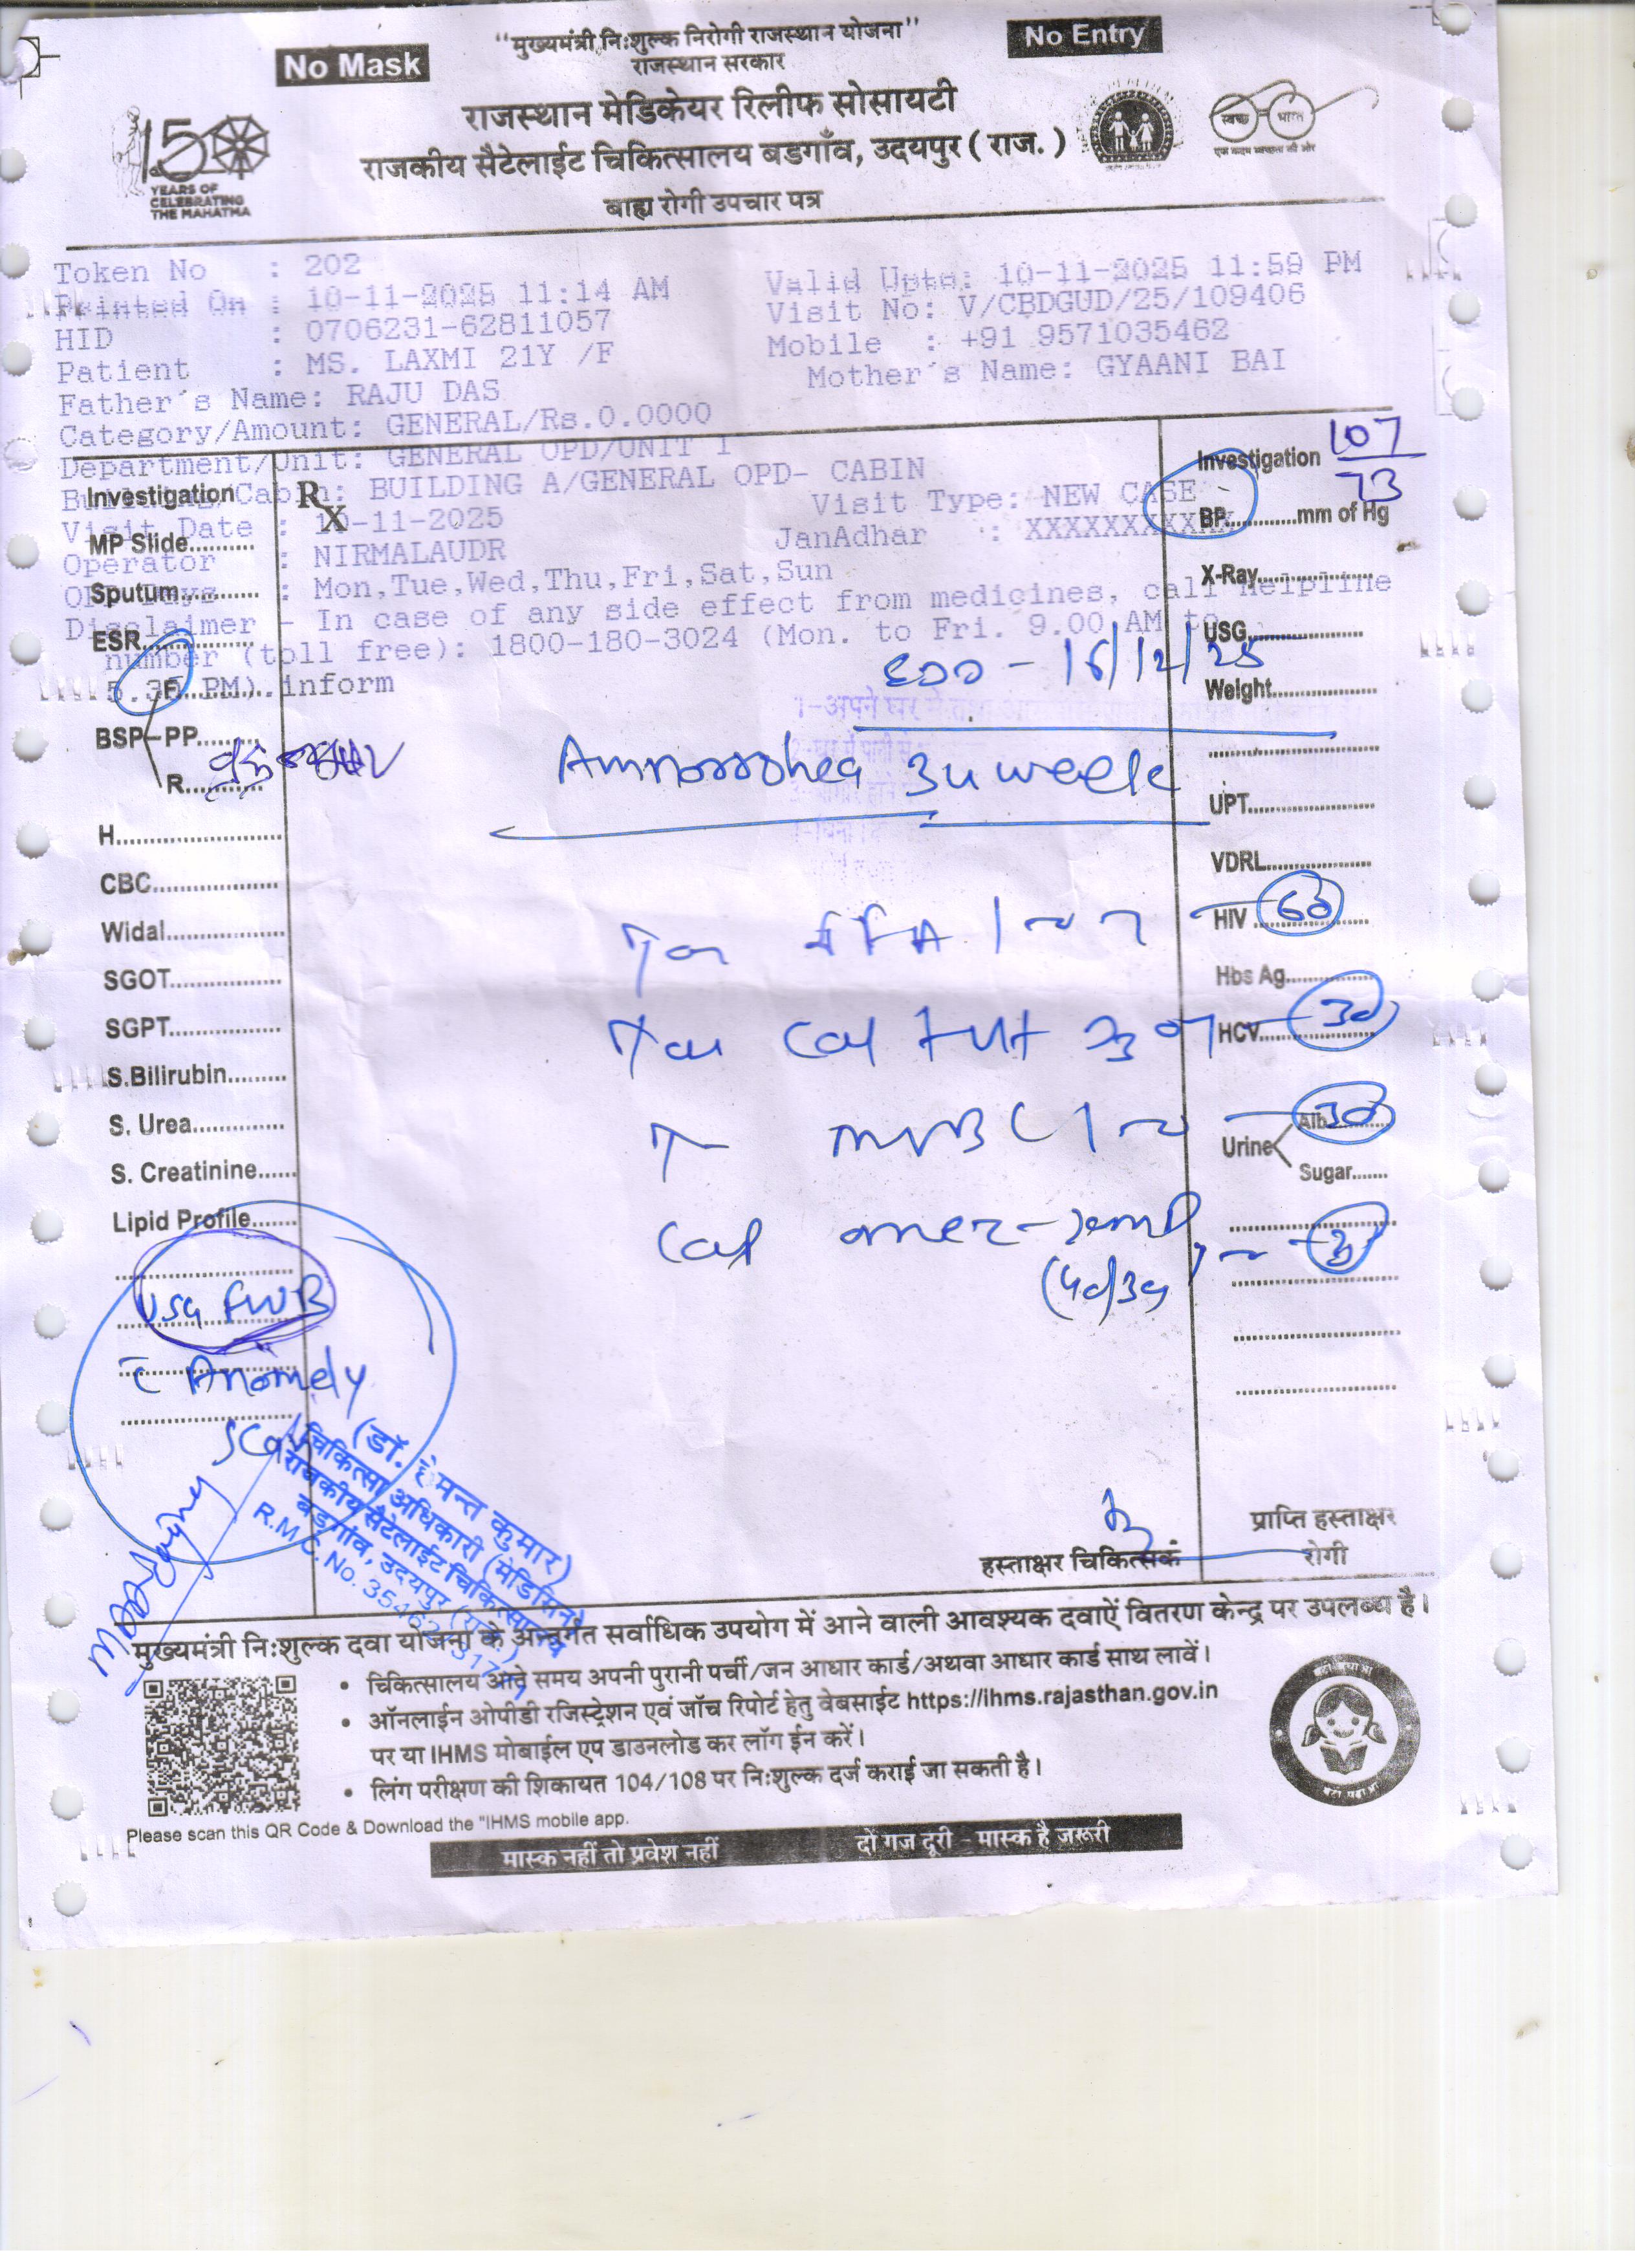 "मुख्यमंत्री निःशुल्क निरोगी राजस्थान योजना"
No Mask
No Entry
राजस्थान सरकार
राजस्थान मेडिकेयर रिलीफ सोसायटी
राजकीय सैटेलाईट चिकित्सालय बडगाँव, उदयपुर ( राज. )
बाह्य रोगी उपचार पत्र
150
YEARS OF
CELEBRATING
THE MAHATMA
स्वच्छ भारत
एक कदम स्वच्छता की ओर
Token No : 202
Valid Upto: 10-11-2025 11:59 PM
Printed On : 10-11-2025 11:14 AM
Visit No: V/CBDGUD/25/109406
HID : 0706231-62811057
Mobile : +91 9571035462
Patient : MS. LAXMI 21Y /F
Mother's Name: GYAANI BAI
Father's Name: RAJU DAS
Category/Amount: GENERAL/Rs.0.0000
Department/Unit: GENERAL OPD/UNIT 1
Building/Cabin: BUILDING A/GENERAL OPD- CABIN
Visit Type: NEW CASE
Visit Date : 10-11-2025
JanAadhar : XXXXXXXXXXX
Operator : NIRMALAUDR
OPD Days : Mon,Tue,Wed,Thu,Fri,Sat,Sun
Disclaimer - In case of any side effect from medicines, call Helpline
number (toll free): 1800-180-3024 (Mon. to Fri. 9.00 AM to
5.30 PM). inform
Investigation
Rx
MP Slide..........
Sputum............
ESR................
BSP
F...............
PP.........
R............
H.........................
CBC...................
Widal..................
SGOT.................
SGPT.................
S.Bilirubin.........
S. Urea..............
S. Creatinine......
Lipid Profile.......
USG FWB
c Anomely
Scan
EDD - 16/12/25
Amnorrohea 34 week
Cap omez-
Investigation
107
73
BP............mm of Hg
X-Ray..................
USG..................
Weight................
UPT....................
VDRL.................
HIV ..................
60
Hbs Ag..............
HCV..................
30
Urine
Alb..........
30
Sugar.......
(डॉ. हेमन्त कुमार)
चिकित्सा अधिकारी (मेडिसिन)
राजकीय सैटेलाईट चिकित्सालय
बड़गांव, उदयपुर (राज.)
R.M.C. No.
हस्ताक्षर चिकित्सक
प्राप्ति हस्ताक्षर
रोगी
मुख्यमंत्री निःशुल्क दवा योजना के अन्तर्गत सर्वाधिक उपयोग में आने वाली आवश्यक दवाऐं वितरण केन्द्र पर उपलब्ध है।
• चिकित्सालय आते समय अपनी पुरानी पर्ची/जन आधार कार्ड/अथवा आधार कार्ड साथ लावें।
• ऑनलाईन ओपीडी रजिस्ट्रेशन एवं जॉच रिपोर्ट हेतु वेबसाईट https://ihms.rajasthan.gov.in
पर या IHMS मोबाईल एप डाउनलोड कर लॉग ईन करें।
• लिंग परीक्षण की शिकायत 104/108 पर निःशुल्क दर्ज कराई जा सकती है।
Please scan this QR Code & Download the "IHMS mobile app.
मास्क नहीं तो प्रवेश नहीं
दो गज दूरी - मास्क है जरूरी